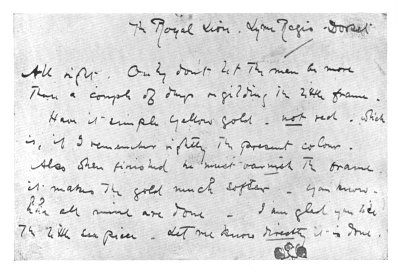 The Royal Lion. Lyme Regis - Dorset
All right. Only don't let the man be more
than a couple of days regilding the little frame.
Have it simple yellow gold - not red - which
is, if I remember rightly the present colour.
Also when finished he must varnish the frame
it makes the gold much softer - you know -
all mine are done - I am glad you like
the little sea piece - Let me know directly it is done.